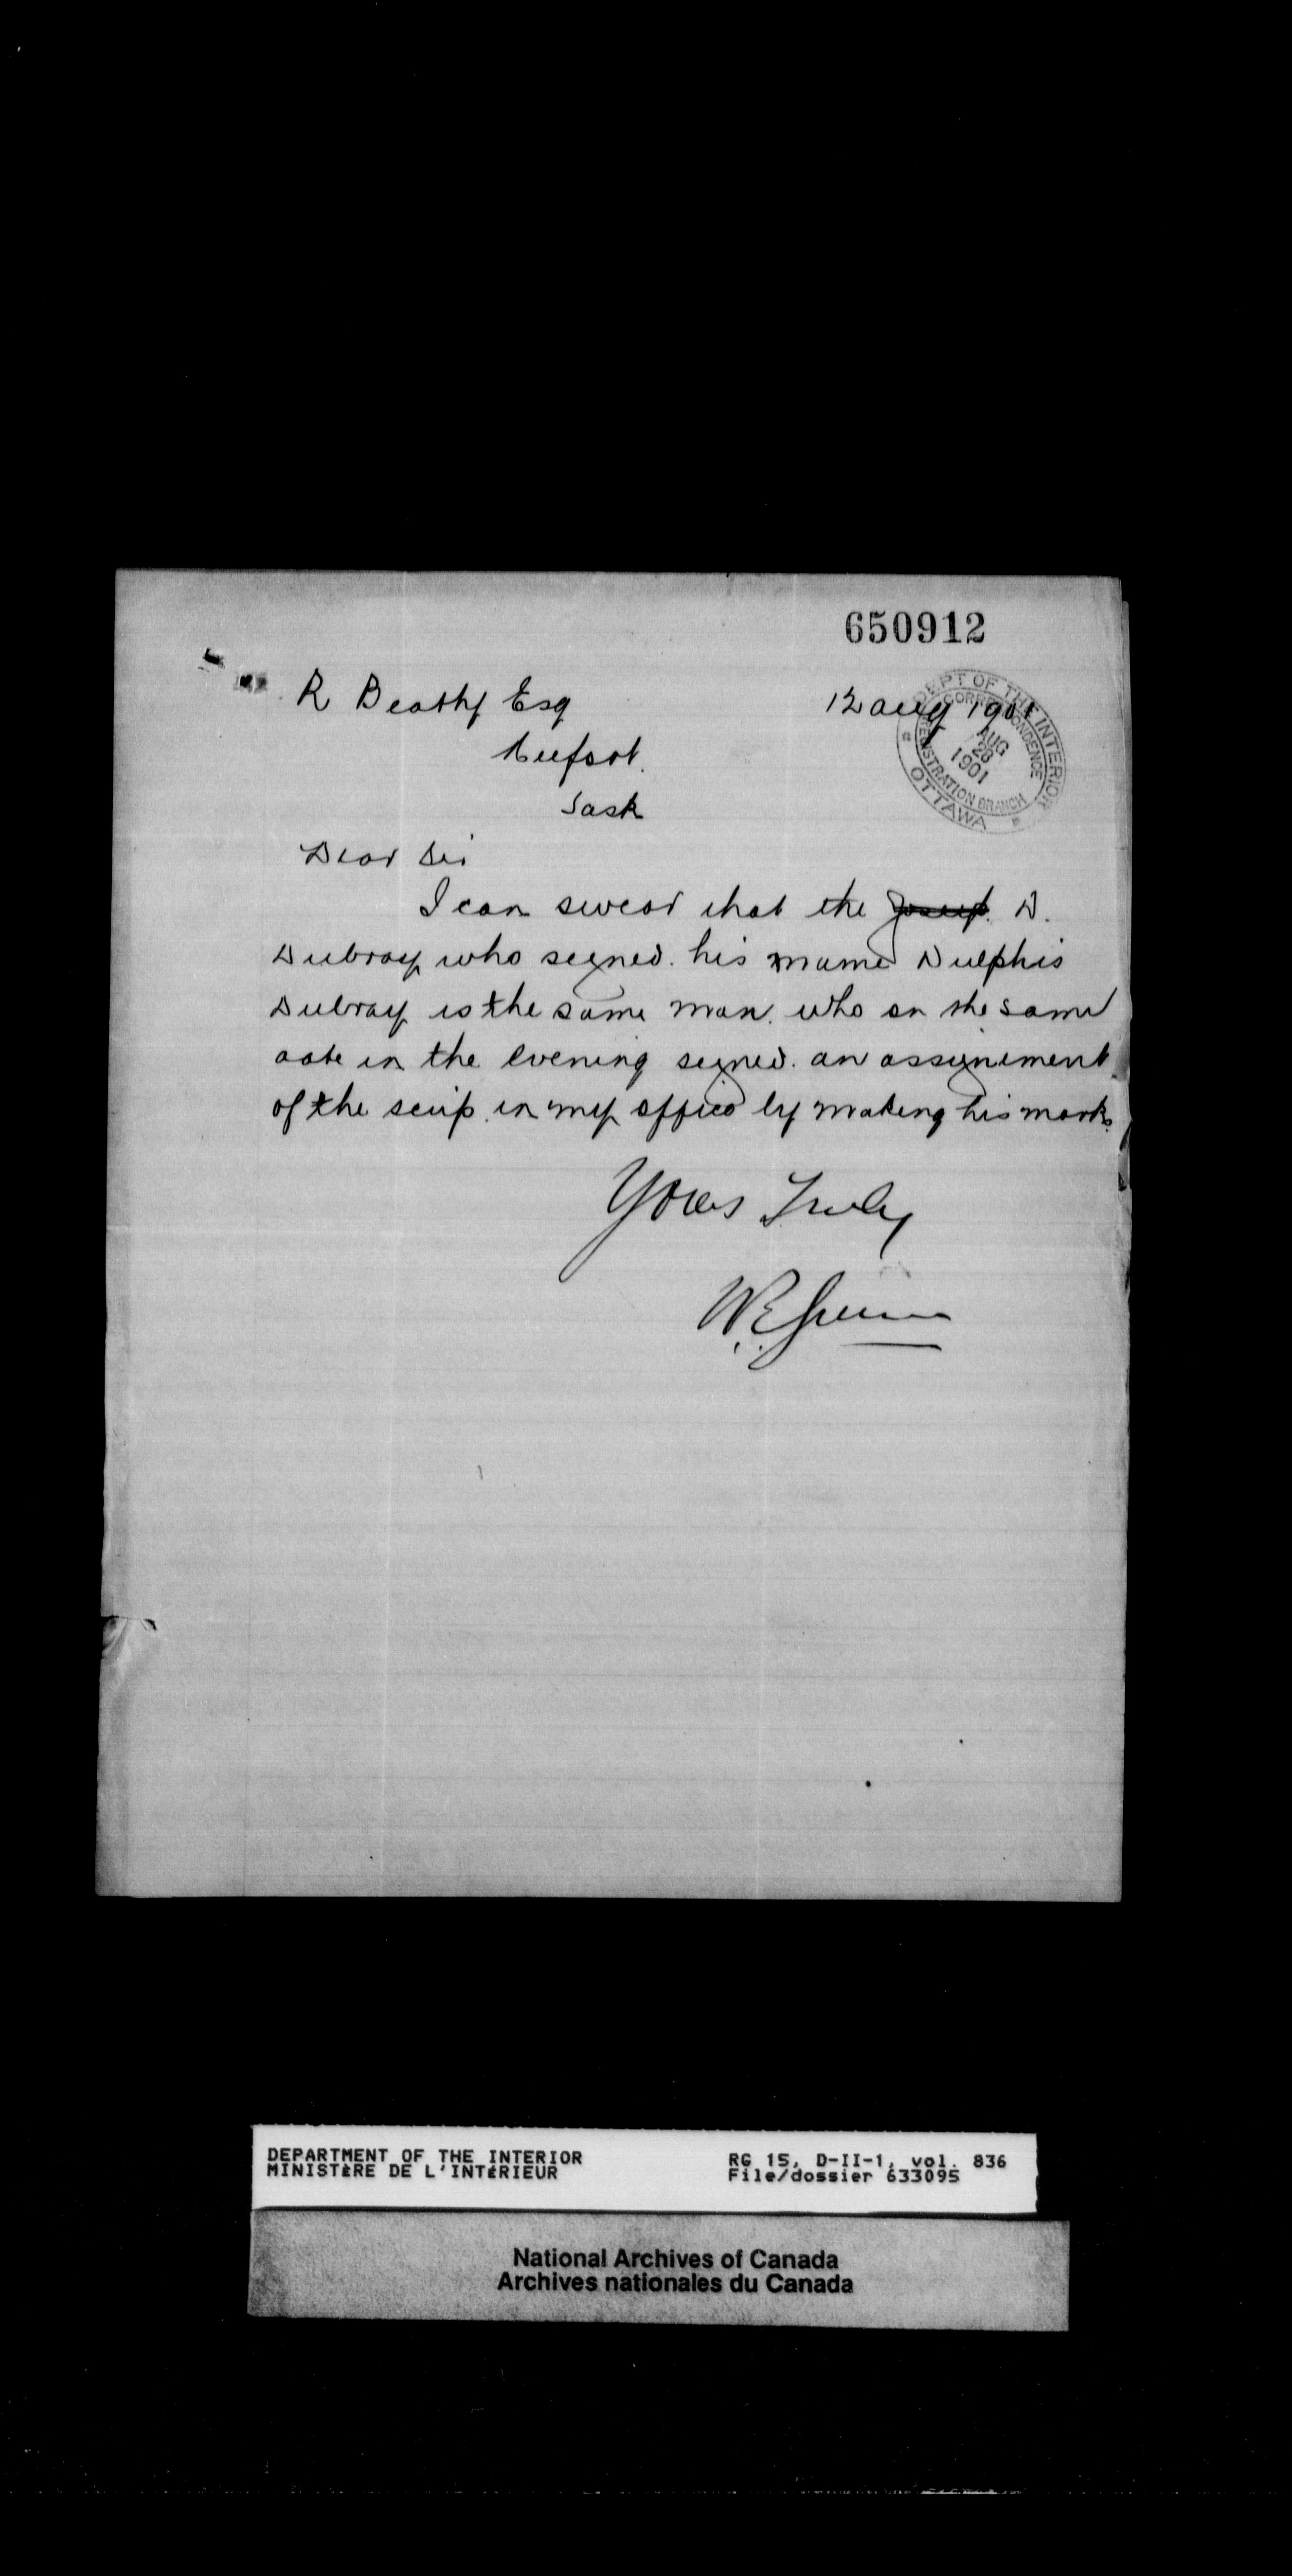 650912
R Beatty Esq
12 Aug 1901
DEPT OF THE INTERIOR
CORRESPONDENCE
AUG
28
1901
REGISTRATION BRANCH
OTTAWA
Sask
Dear Sir
I can swear that the Joseph D.
Dubray who signed his name Dulphis
Dubray is the same man who on the same
date in the evening signed an assignment
of the scrip in my office by making his mark
Yours Truly
W.E.
DEPARTMENT OF THE INTERIOR RG 15, D-II-1, vol. 836
MINISTÈRE DE L'INTÉRIEUR File/dossier 633095
National Archives of Canada
Archives nationales du Canada